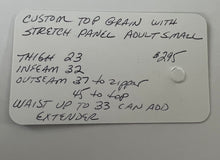 CUSTOM TOP GRAIN WITH
STRETCH PANEL ADULT SMALL
THIGH 23 $295
INSEAM 32
OUTSEAM 37 to zipper
45 to top
WAIST UP TO 33 CAN ADD
EXTENDER